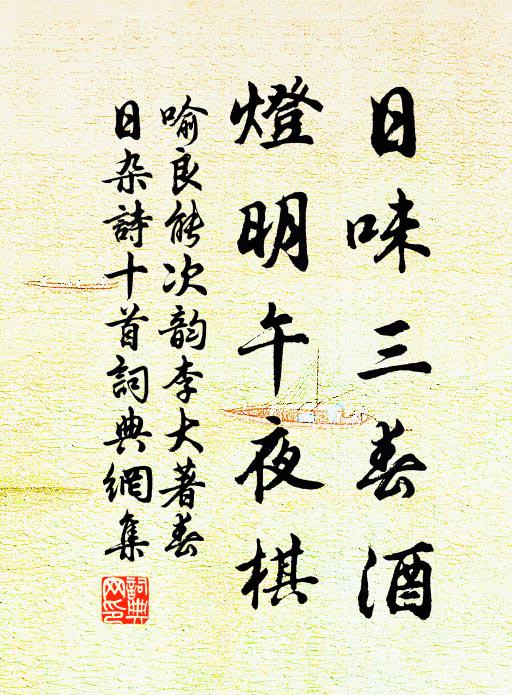 日味三春酒
燈明午夜棋
喻良能次韵李大著春
日杂詩十首詞典網集
詞典